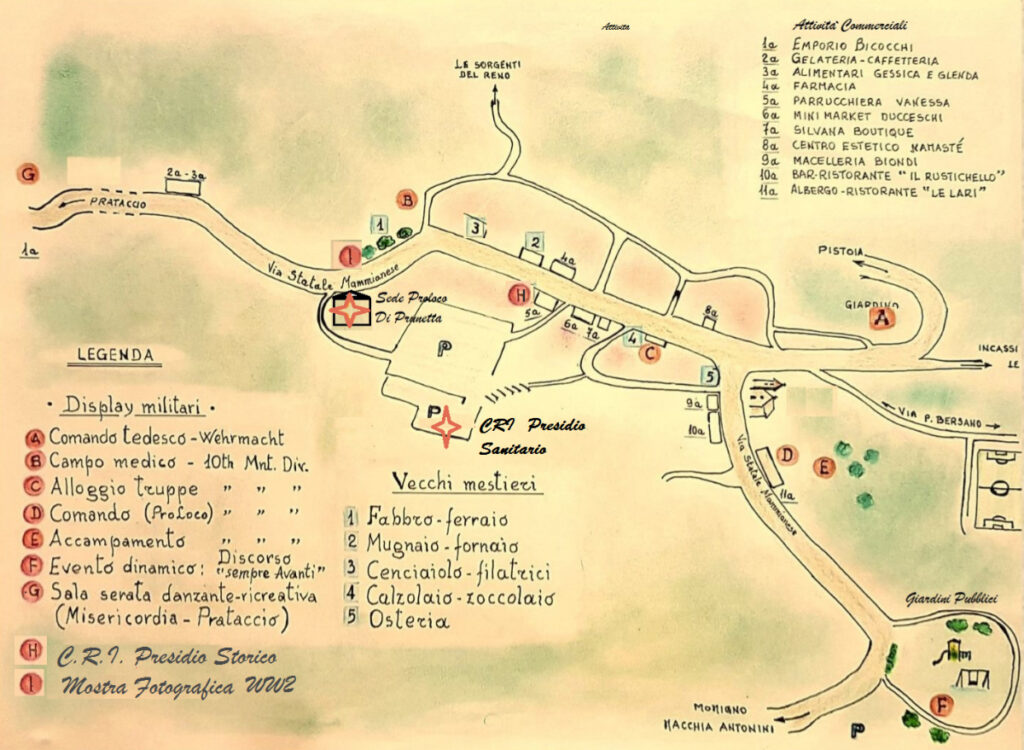 Attivita
Attivita' Commerciali
1a EMPORIO BICOCCHI
2a GELATERIA-CAFFETTERIA
3a ALIMENTARI GESSICA E GLENDA
4a FARMACIA
5a PARRUCCHIERA VANESSA
6a MINI MARKET DUCCESCHI
7a SILVANA BOUTIQUE
8a CENTRO ESTETICO NAMASTÉ
9a MACELLERIA BIONDI
10a BAR-RISTORANTE "IL RUSTICHELLO"
11a ALBERGO-RISTORANTE "LE LARI"
LE SORGENTI
DEL RENO
G
2a-3a
PRATACCIO
1a
B
1
I
3
2
4a
Via Statale Mammianese
H
5a
6a
7a
8a
4
C
5
PISTOIA
GIARDINO
A
INCASSI
LE
Sede Proloco
Di Prunetta
P
P
CRI Presidio
Sanitario
9a
10a
VIA P. BERSANO
D
E
11a
Via Statale Mammianese
Giardini Pubblici
F
P
MOMIGNO
MACCHIA ANTONINI
LEGENDA
· Display militari ·
A Comando tedesco-Wehrmacht
B Campo medico - 10th Mnt. Div.
C Alloggio truppe " " "
D Comando (ProLoco) " " "
E Accampamento " " "
F Evento dinamico: Discorso
"sempre Avanti"
G Sala serata danzante-ricreativa
(Misericordia - Prataccio)
H C.R.I. Presidio Storico
I Mostra Fotografica WW2
Vecchi mestieri
1 Fabbro-ferraio
2 Mugnaio-fornaio
3 Cenciaiolo-filatrici
4 Calzolaio-zoccolaio
5 Osteria